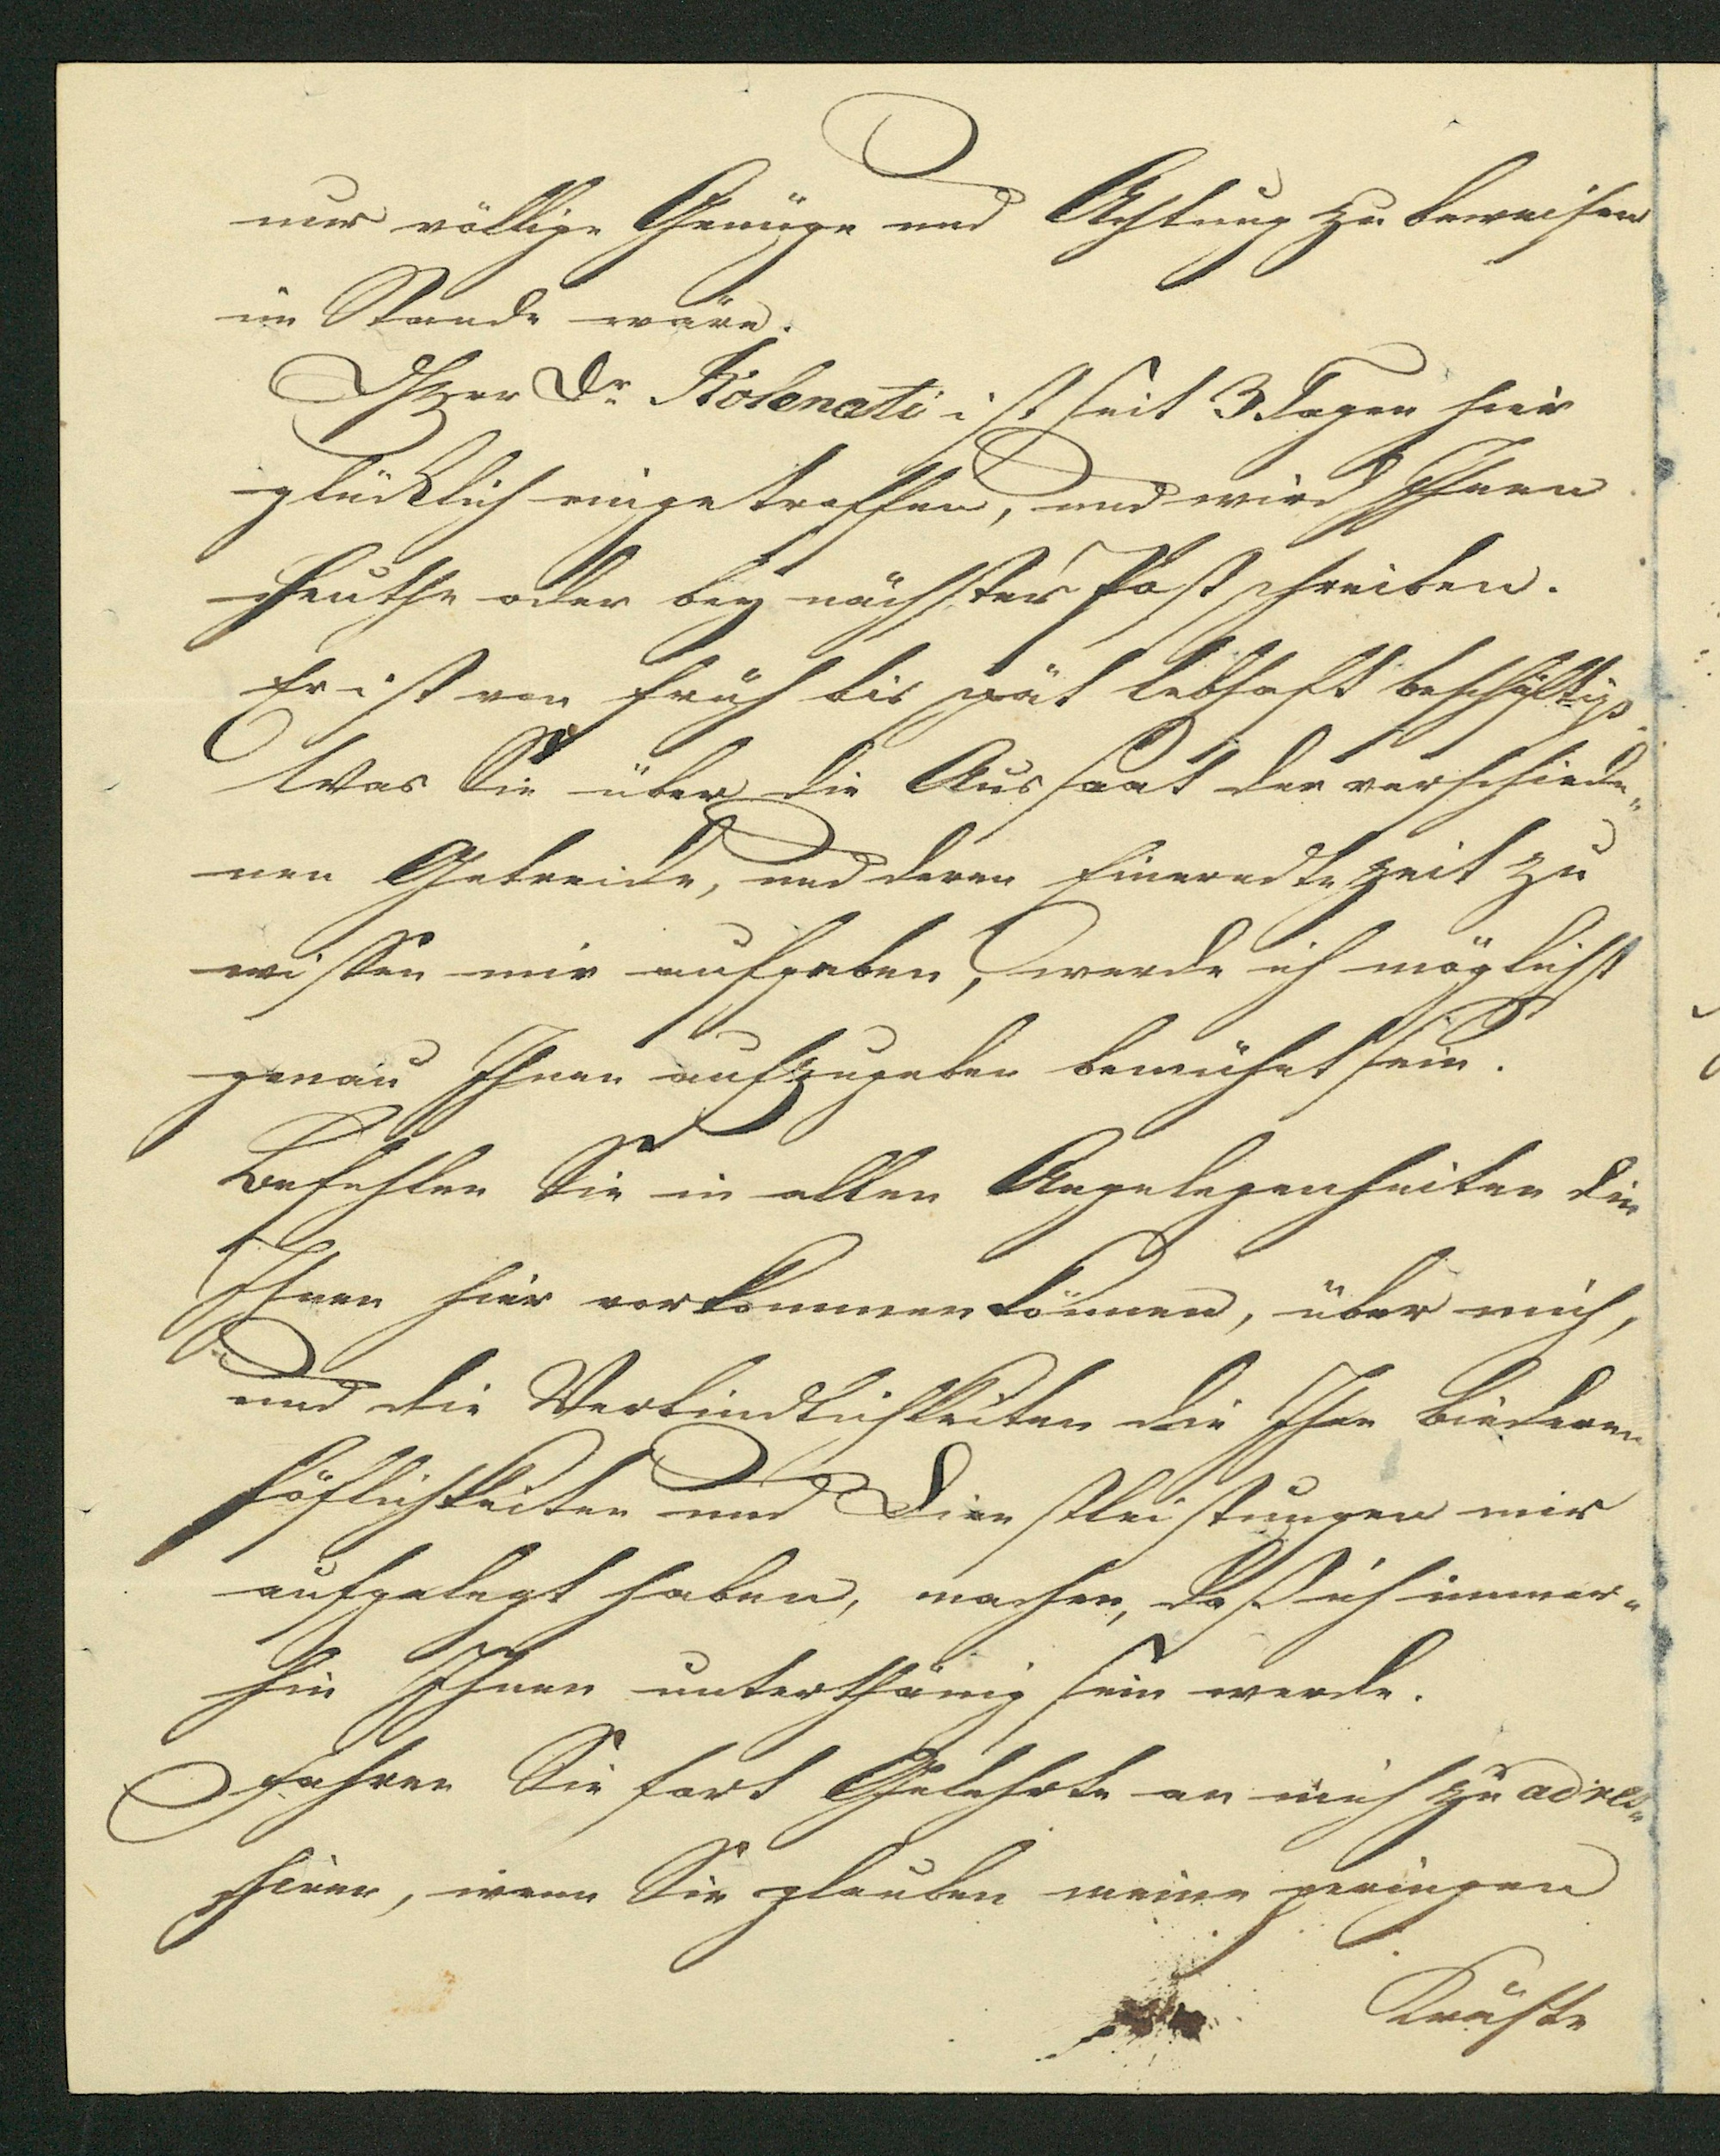 nur völlige Genüge und Achtung zu beweisen
im Stande wäre.
Dr. Kolenati ist seit 3 Tagen hier
glücklich eingetroffen, und wird Ihnen
heuthe oder bey nächster Post schreiben.
Er ist von früh bis spät lebhaft beschäftigt.
Was Sie über die Aussaat der verschiede„
nen Getreide, und deren Einerndtezeit zu
wissen mir aufgaben, werde ich möglichst
genau Ihnen aufzugeben bemühet sein.
Befehlen Sie in allen Angelegenheiten die
Ihnen hier vorkommen können, über mich,
und die Verbindlichkeiten die Ihre biederen
Höflichkeiten und Dienstleistungen mir
aufgelegt haben, machen, daß ich immer„
hin Ihnen unterthänig sein werde.
Fahren Sie fort Gelehrte an mich zu adres„
siren, wenn Sie glauben meine geringen
Kräfte